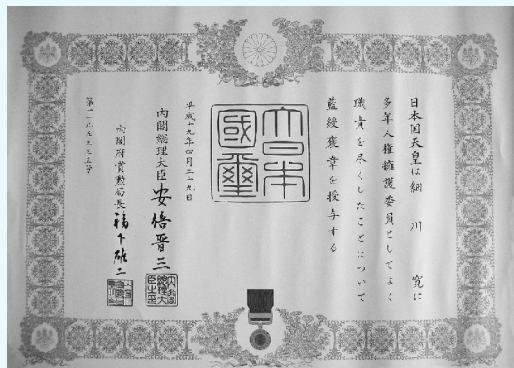 日本国天皇は細川寛に
多年人権擁護委員としてよく
職責を尽くしたことについて
藍綬褒章を授与する
大日本
國璽
平成十九年四月二十九日
内閣総理大臣 安倍晋三
内閣府賞勲局長 福下雄二